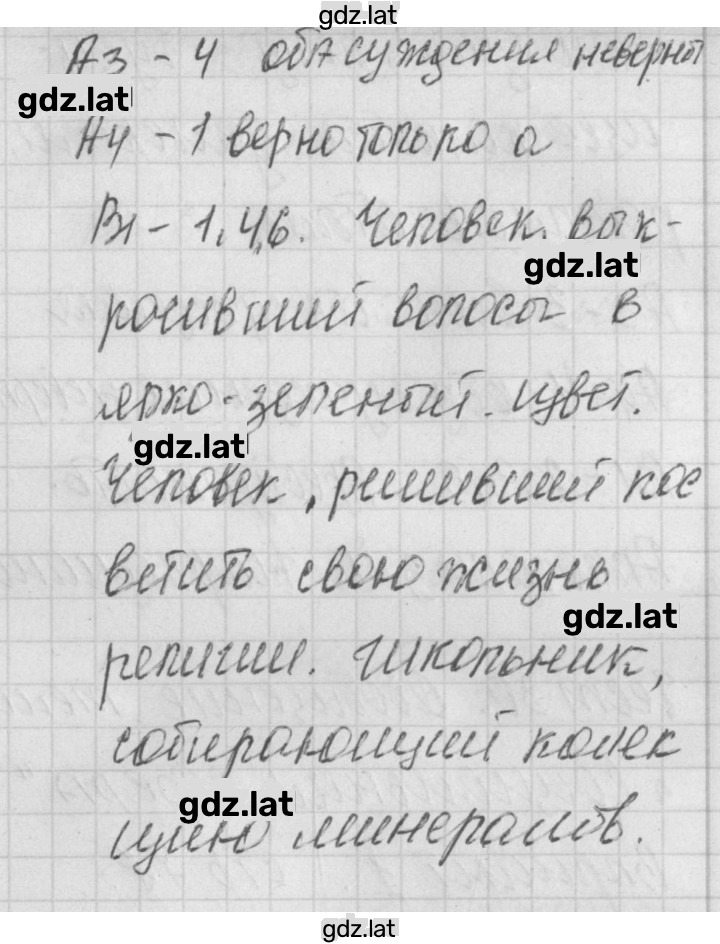 gdz.lat
А3 - 4 оба суждения неверны
gdz.lat
А4 - 1 верно только а
В1 - 1,4,6. Человек. вык-
gdz.lat
расивший волосы в
ярко-зеленый. цвет.
gdz.lat
Человек, решивший пос
ветить свою жизнь
gdz.lat
религии. Школьник,
собирающий колек
gdz.lat
цию минералов.
gdz.lat